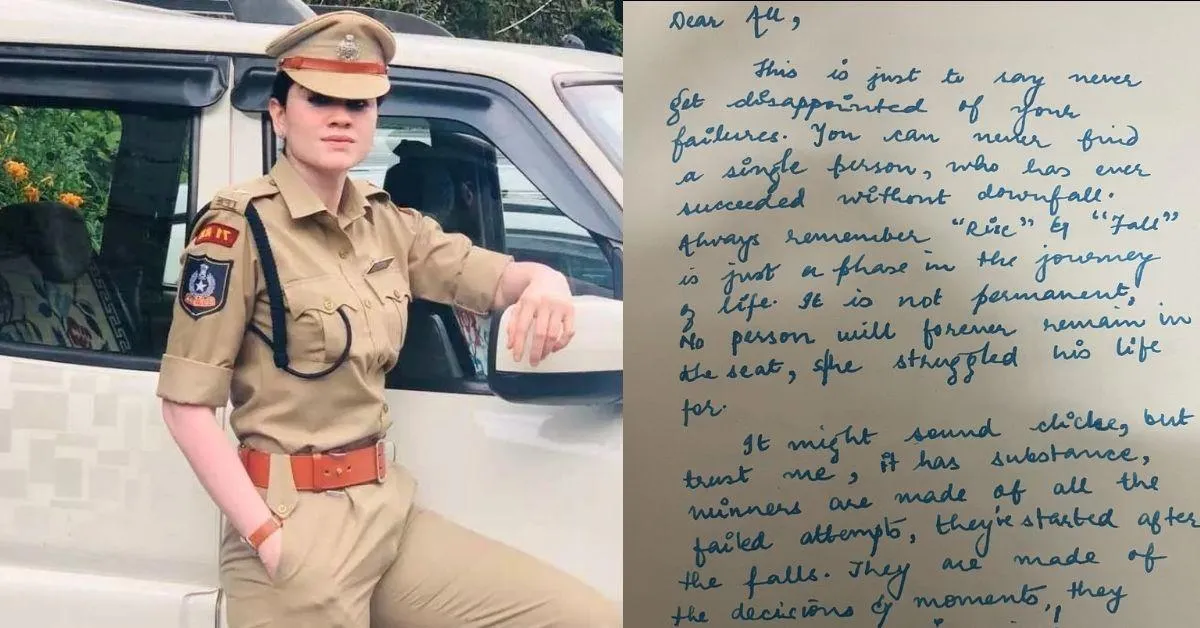 Dear All,
This is just to say never
get disappointed of your
failures. You can never find
a single person, who has ever
succeeded without downfall.
Always remember "Rise" & "Fall"
is just a phase in the journey
of life. It is not permanent,
No person will forever remain in
the seat, s/he struggled his life
for.
It might sound cliche, but
trust me, it has substance,
winners are made of all the
failed attempts, they've started after
the falls. They are made of
the decisions & moments, they